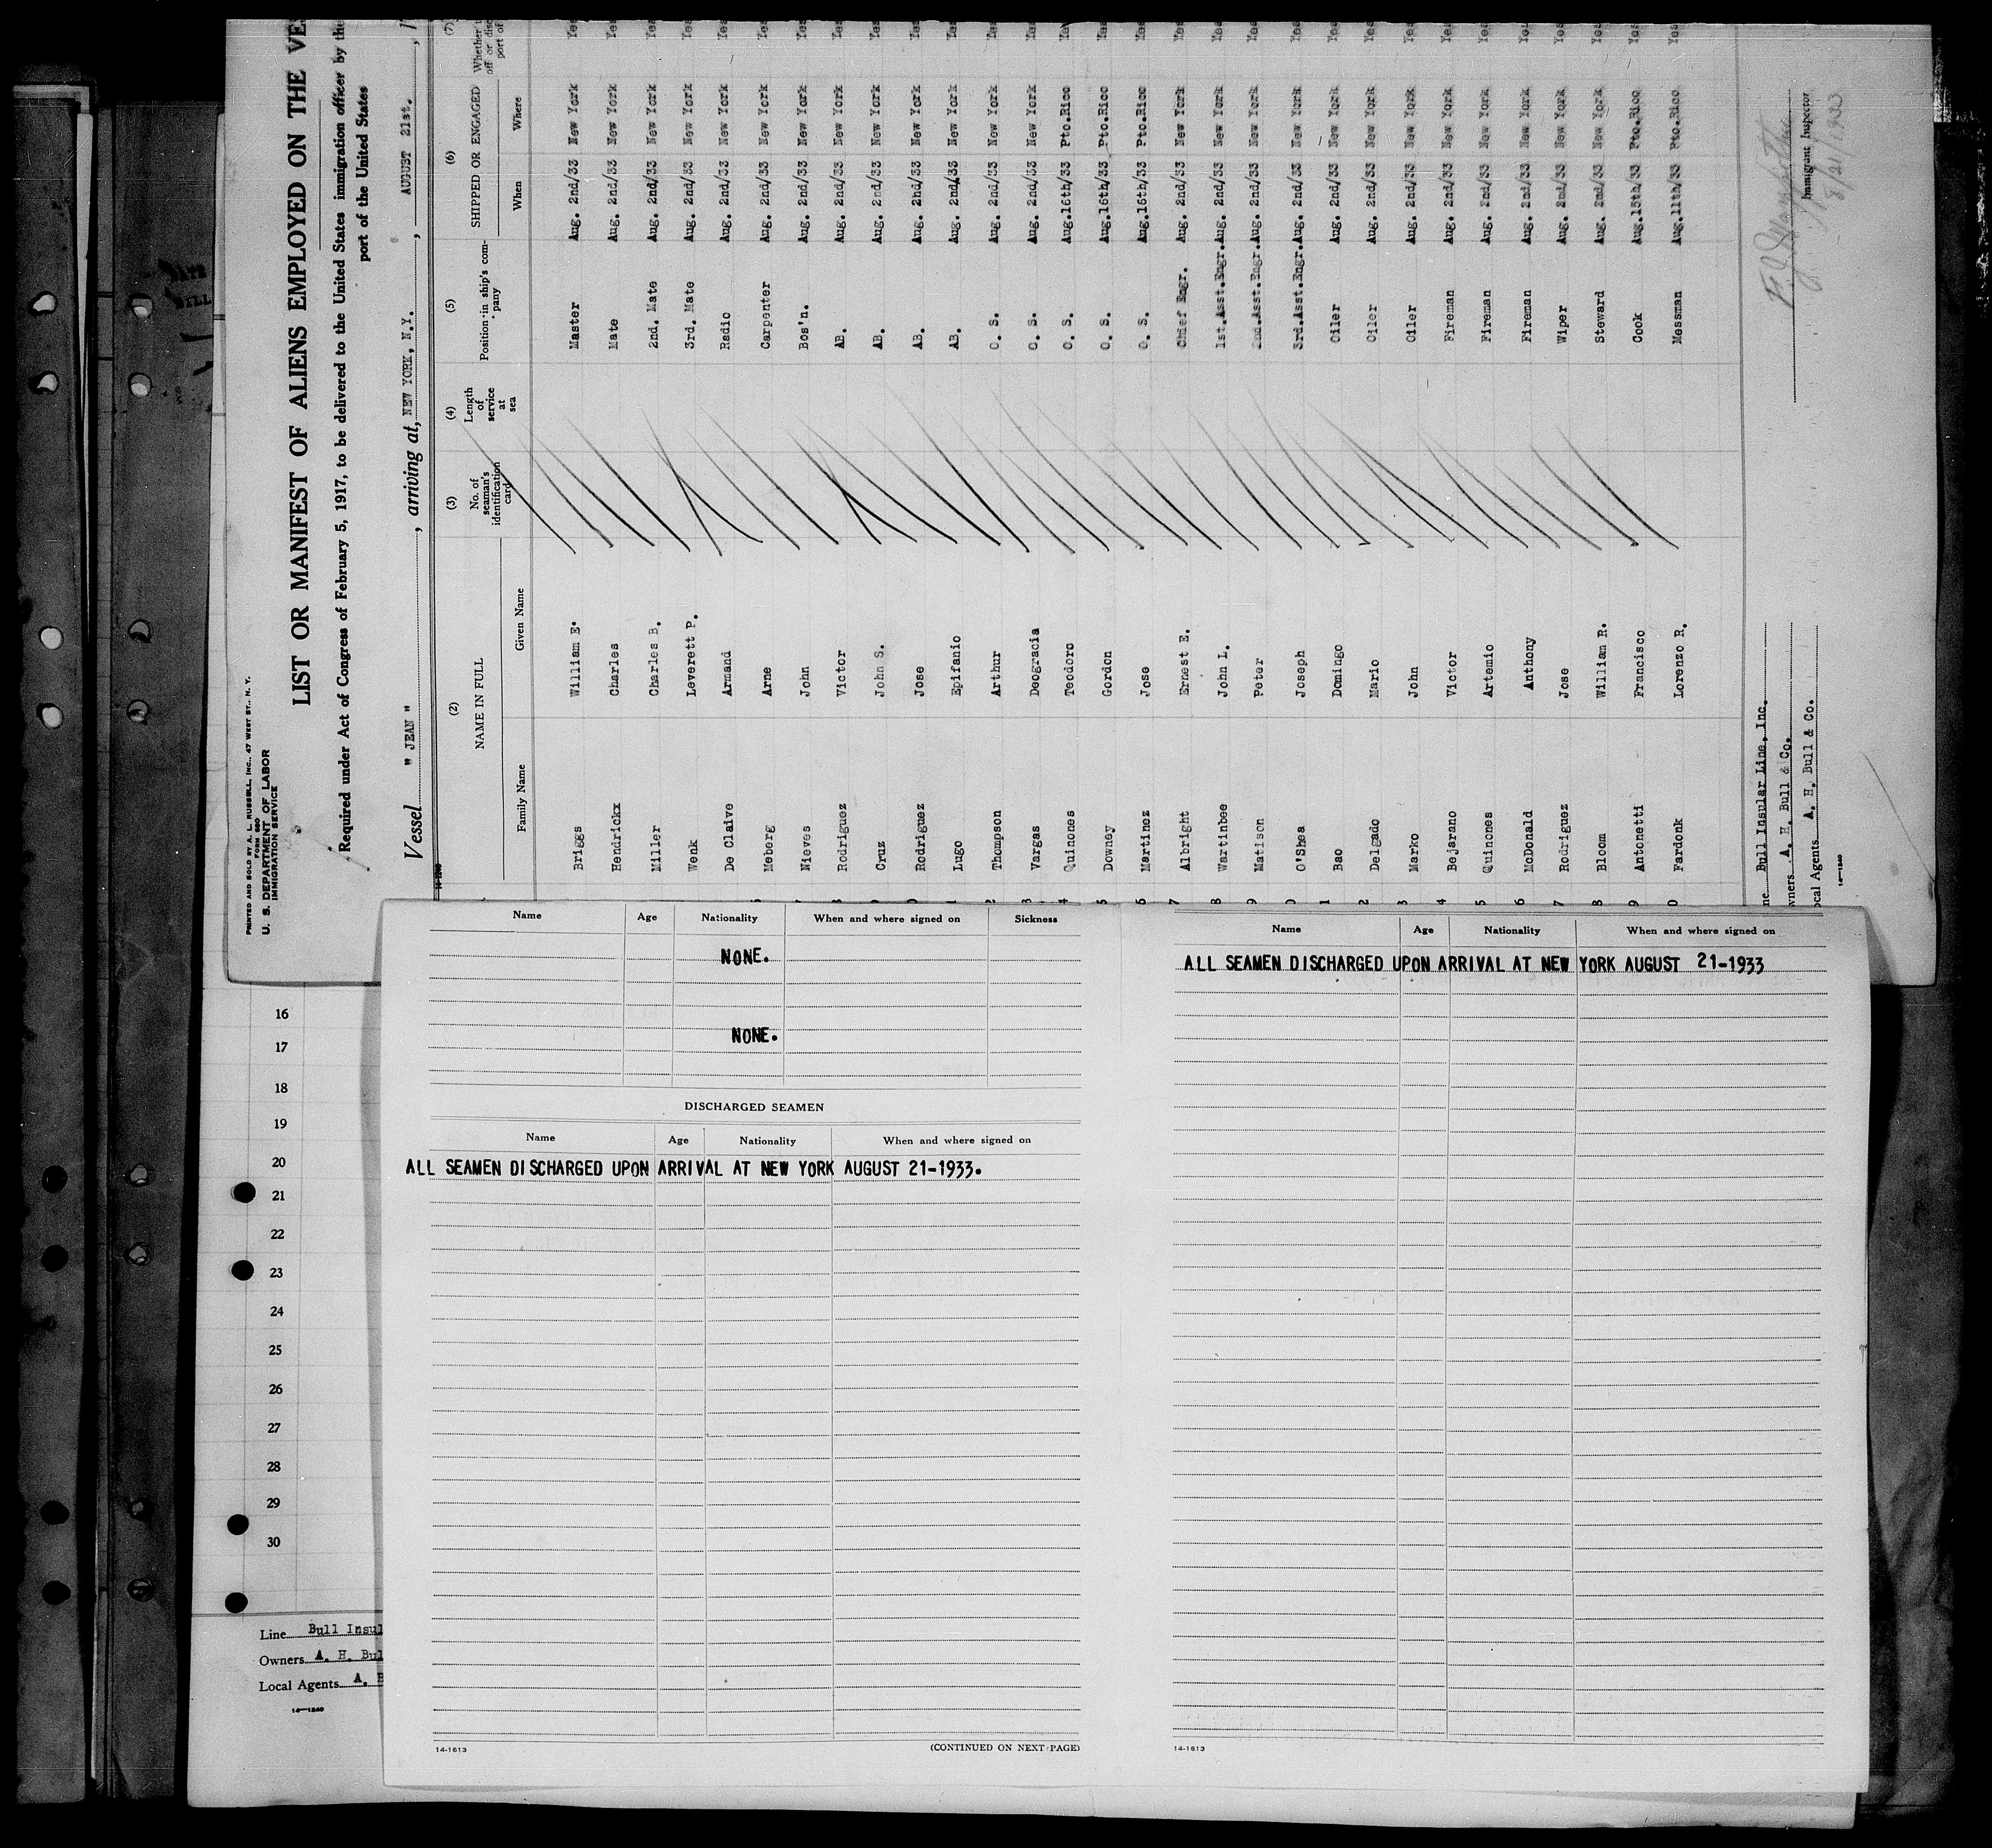 PRINTED AND SOLD BY A. L. RUSSELL, INC., 47 WEST ST., N. Y.
FORM 680
U. S. DEPARTMENT OF LABOR
IMMIGRATION SERVICE
LIST OR MANIFEST OF ALIENS EMPLOYED ON THE VE
Required under Act of Congress of February 5, 1917, to be delivered to the United States immigration officer by the
port of the United States
Vessel " JEAN " , arriving at, NEW YORK, N.Y. , AUGUST 21st. , 1
14-1240
(2) (3) (4) (5) (6) (7)
NAME IN FULL No. of seaman's identification card Length of service at sea Position in ship's company SHIPPED OR ENGAGED Whether
off or disc
port of
Family Name Given Name When Where
Briggs William E. Master Aug. 2nd/33 New York Yes
Hendrickx Charles Mate Aug. 2nd/33 New York Yes
Miller Charles B. 2nd. Mate Aug. 2nd/33 New York Yes
Wenk Leverett P. 3rd. Mate Aug. 2nd/33 New York Yes
De Claive Armand Radio Aug. 2nd/33 New York Yes
Meberg Arne Carpenter Aug. 2nd/33 New York Yes
7 Nieves John Bos'n. Aug. 2nd/33 New York Yes
8 Rodriguez Victor AB. Aug. 2nd/33 New York Yes
Cruz John S. AB. Aug. 2nd/33 New York Yes
0 Rodriguez Jose AB. Aug. 2nd/33 New York Yes
1 Lugo Epifanio AB. Aug. 2nd/33 New York Yes
2 Thompson Arthur O. S. Aug. 2nd/33 New York Yes
3 Vargas Deogracia O. S. Aug. 2nd/33 New York Yes
4 Quinones Teodoro O. S. Aug.16th/33 Pto.Rico Yes
5 Downey Gordon O. S. Aug.16th/33 Pto.Rico Yes
6 Martinez Jose O. S. Aug.16th/33 Pto.Rico Yes
7 Albright Ernest E. Chief Engr. Aug. 2nd/33 New York Yes
8 Wartinbee John L. 1st.Asst.Engr. Aug. 2nd/33 New York Yes
9 Matison Peter 2nd.Asst.Engr. Aug. 2nd/33 New York Yes
0 O'Shea Joseph 3rd.Asst.Engr. Aug. 2nd/33 New York Yes
1 Bao Domingo Oiler Aug. 2nd/33 New York Yes
2 Delgado Mario Oiler Aug. 2nd/33 New York Yes
3 Marko John Oiler Aug. 2nd/33 New York Yes
4 Bejarano Victor Fireman Aug. 2nd/33 New York Yes
5 Quinones Artemio Fireman Aug. 2nd/33 New York Yes
6 McDonald Anthony Fireman Aug. 2nd/33 New York Yes
7 Rodriguez Jose Wiper Aug. 2nd/33 New York Yes
8 Bloom William R. Steward Aug. 2nd/33 New York Yes
9 Antonetti Francisco Cook Aug.15th/33 Pto.Rico Yes
0 Fardonk Lorenzo R. Messman Aug.11th/33 Pto.Rico Yes
ne Bull Insular Line, Inc.
wners A. H. Bull & Co.
ocal Agents A. H. Bull & Co.
14-1240
Immigrant Inspector
8/21/1933
Name Age Nationality When and where signed on Sickness
NONE.
NONE.
DISCHARGED SEAMEN
Name Age Nationality When and where signed on
ALL SEAMEN DISCHARGED UPON ARRIVAL AT NEW YORK AUGUST 21-1933.
14-1613 (CONTINUED ON NEXT PAGE)
Name Age Nationality When and where signed on
ALL SEAMEN DISCHARGED UPON ARRIVAL AT NEW YORK AUGUST 21-1933
14-1613
16
17
18
19
20
21
22
23
24
25
26
27
28
29
30
Line Bull Insul
Owners A. H. Bul
Local Agents A. B
14-1240